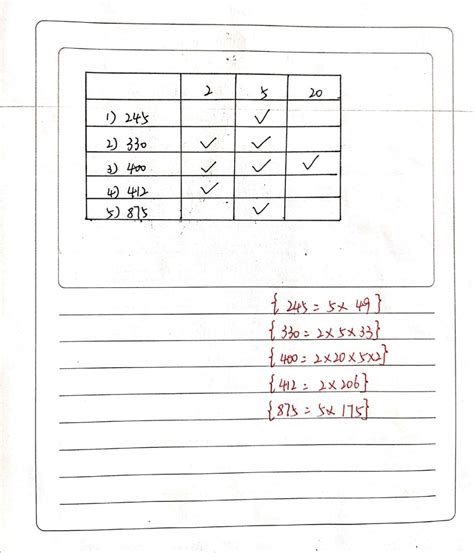 2 5 20
1) 245 ✓
2) 330 ✓ ✓
3) 400 ✓ ✓ ✓
4) 412 ✓
5) 875 ✓
{245 = 5 × 49}
{330 = 2×5×33}
{400 = 2×20×5×2}
{412 = 2×206}
{875 = 5×175}